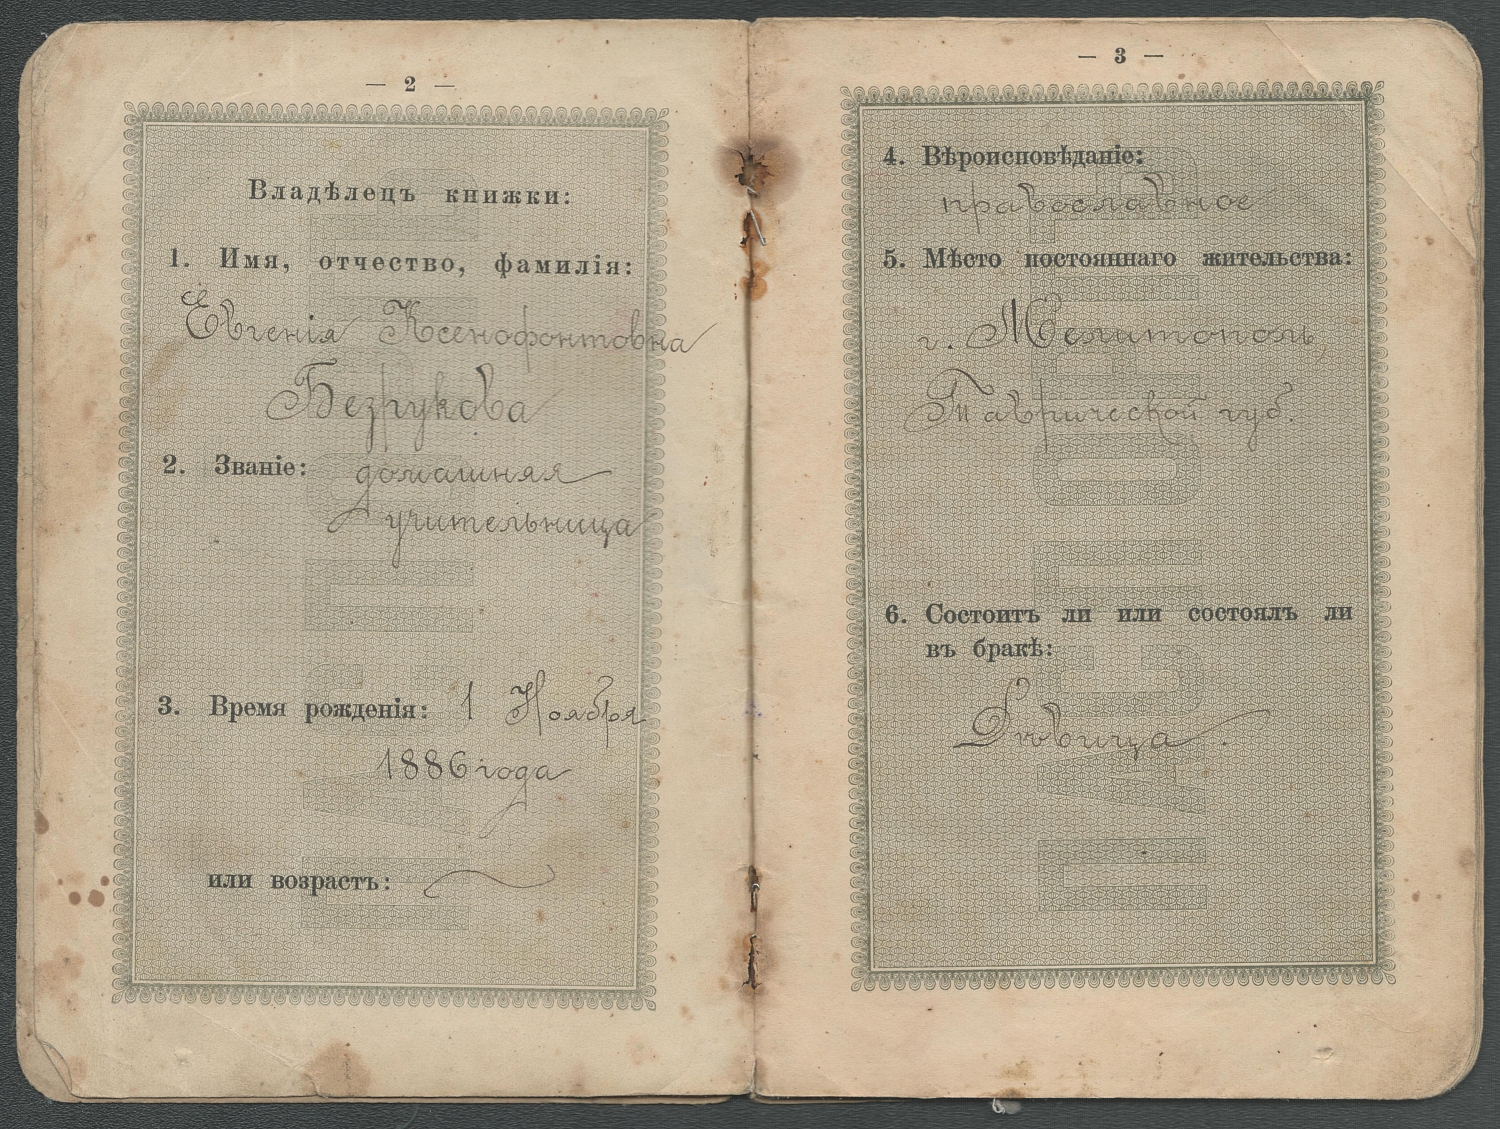 — 2 —
Владѣлецъ книжки:
1. Имя, отчество, фамилія:
Евгенія Ксенофонтовна
Безрукова
2. Званіе: домашняя
учительница
3. Время рожденія: 1 Ноября
1886 года
или возрастъ:
— 3 —
4. Вѣроисповѣданіе:
православное
5. Мѣсто постояннаго жительства:
г. Мелитополь,
Таврической губ.
6. Состоитъ ли или состоялъ ли
въ бракѣ:
Дѣвица.